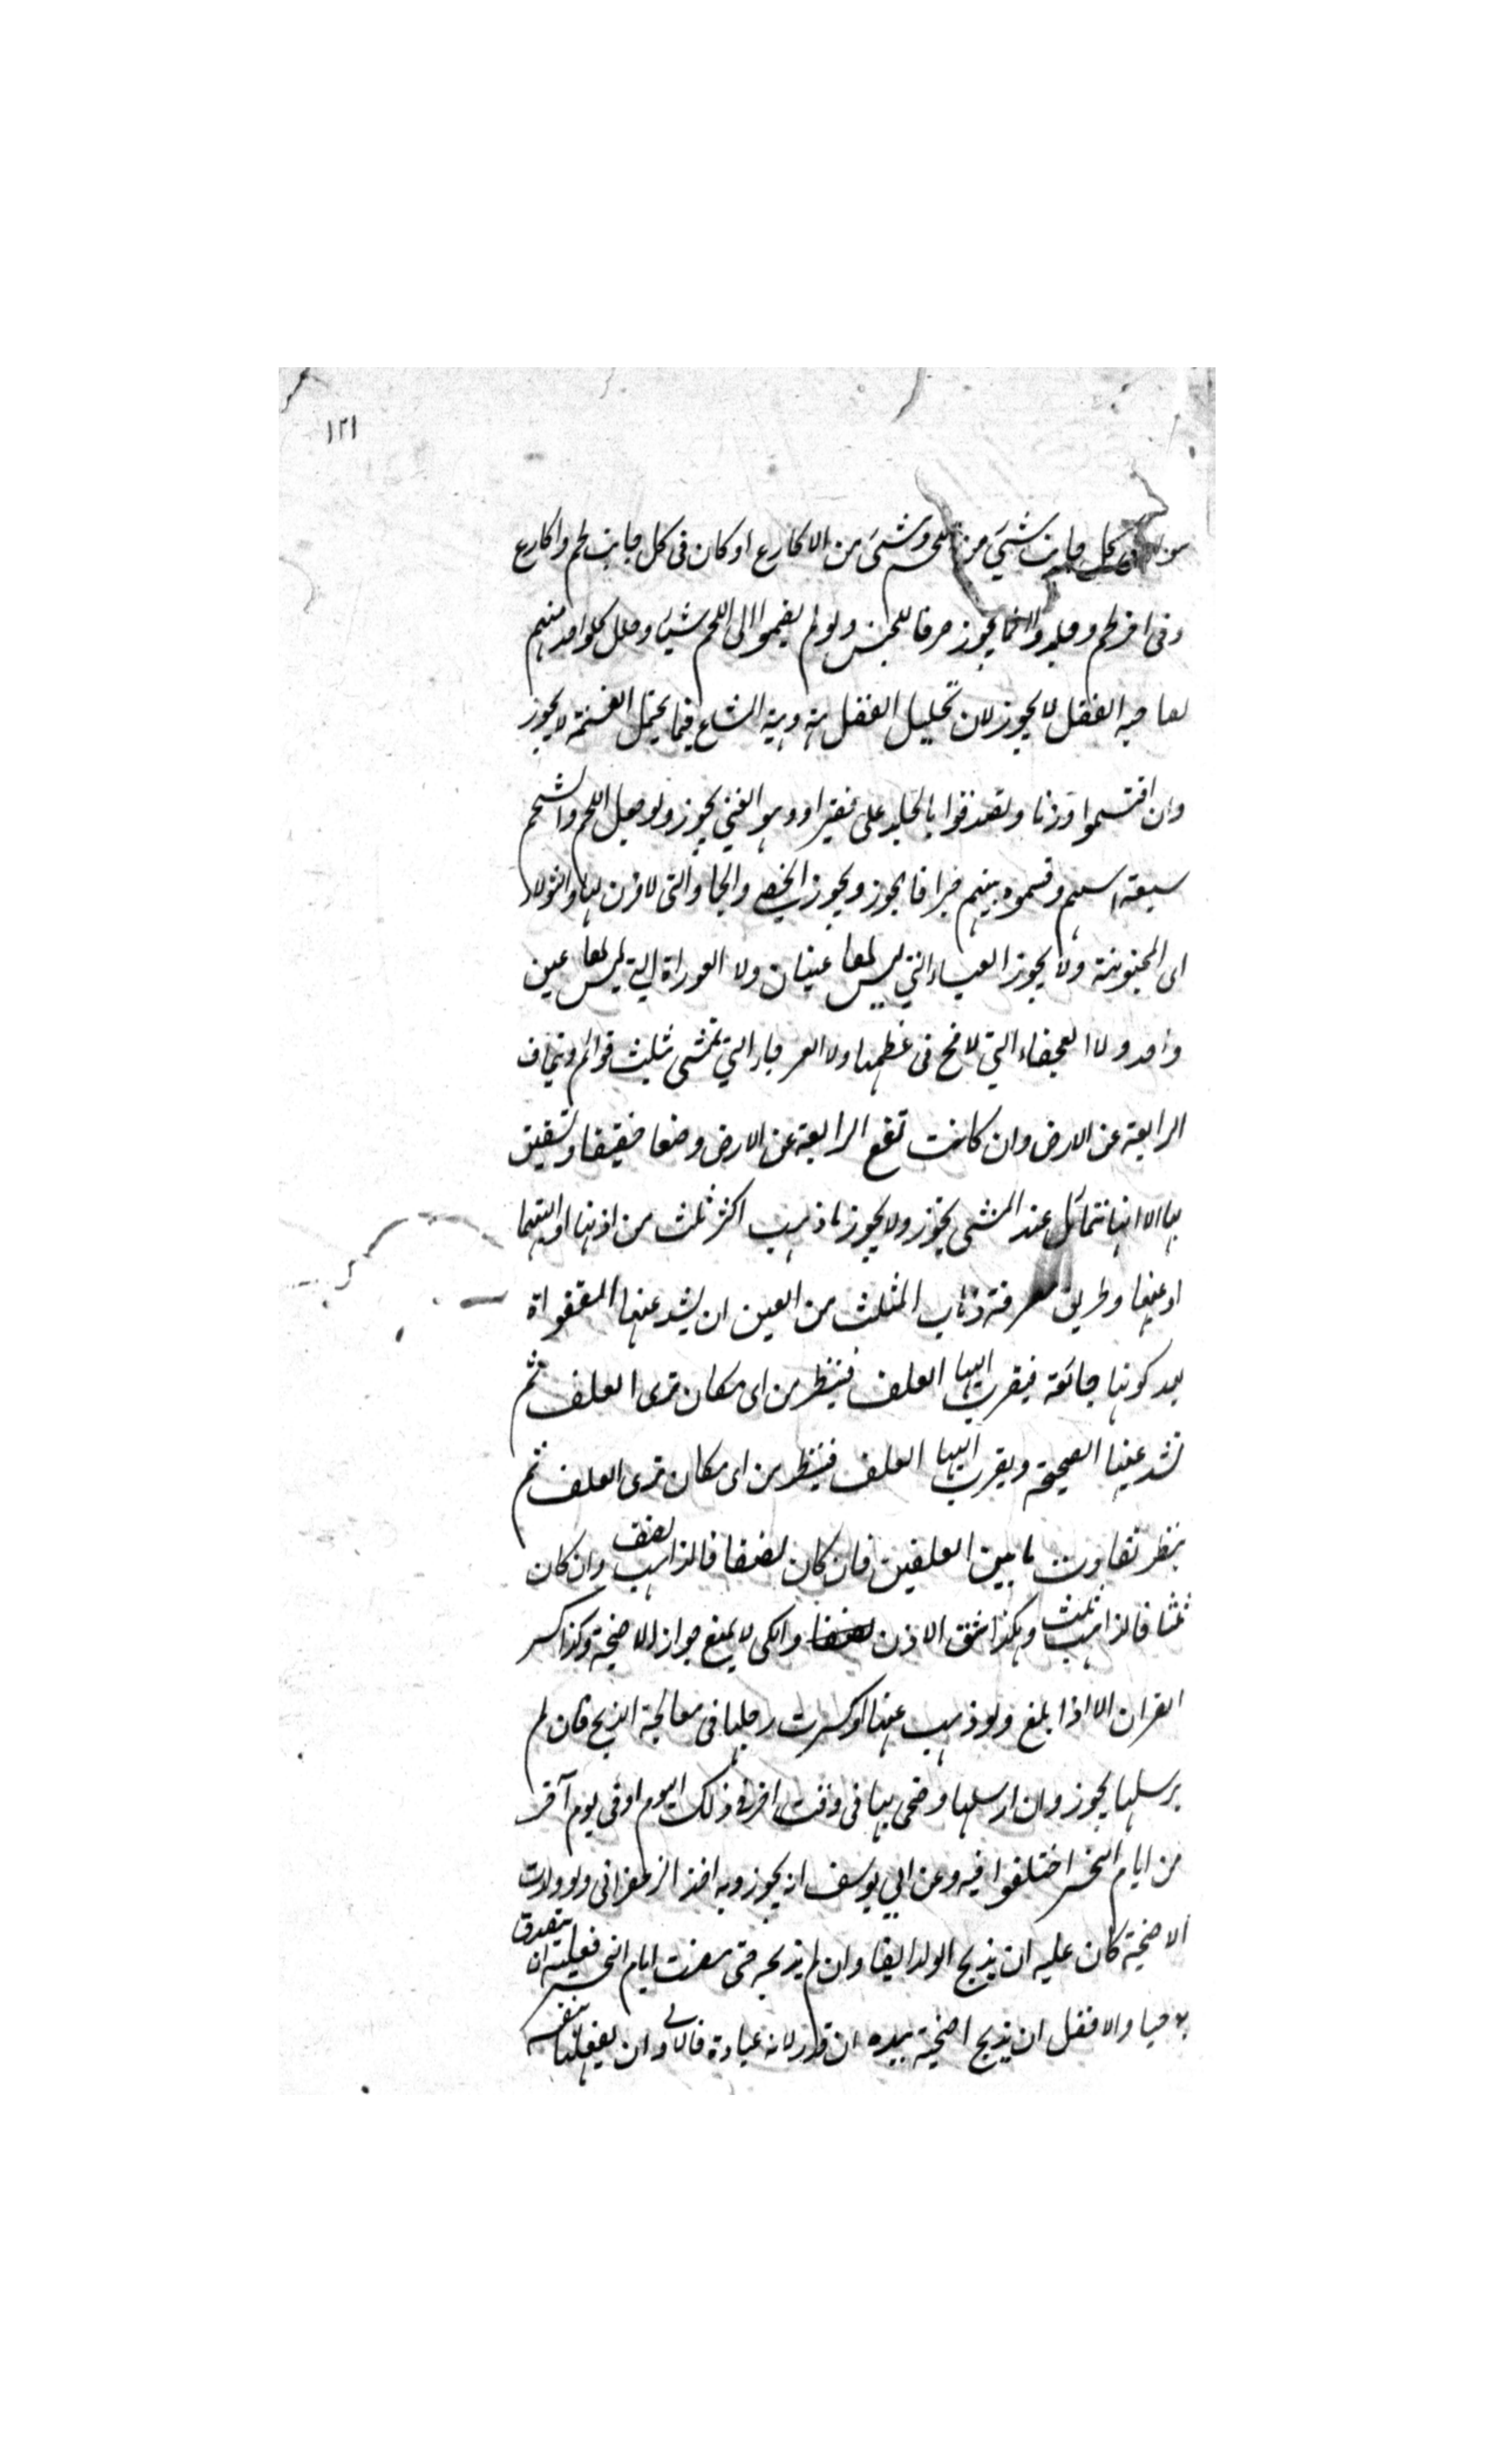 ١٢١
كل جانب شيئ من اللحم وشيئ من الاكارع او كان فى كل جانب لحم واكارع
وفى اخر لحم وجلد وانما يجوز صرفا للجنس ولو لم يضموا الى اللحم شيئا وحلل كلواحد منهم
لصاحبه الفضل لا يجوز لان تحليل الفضل هبة وهبة المشاع فيما يحتمل القسمة لا يجوز
وان اقتسموا وزنا وتصدقوا بالجلد على فقير او وهبوا لغنى يجوز ولو جعل اللحم والشحم
سبعة اسهم وقسموه بينهم جزافا يجوز ويجوز الخصى والجما والتى لا قرن لها والثولاء
اى المجنونة ولا يجوز العمياء التي ليس لها عينان ولا العوراة التي ليس لها عين
واحد ولا العجفاء التي لا مخ فى عظمها ولا العرجاء التي تمشى بثلث قوائم وتجاف
الرابعة عن الارض وان كانت تضع الرابعة عن الارض وضعا خفيفا وتستعين
بها الا انها تتمائل عند المشى يجوز ولا يجوز ما ذهب اكثر ثلث من اذنها او اليتها
او عينها وطريق معرفة ذهاب الثلث من العين ان يشد عينها
بعد كونها جائعة فيقرب اليها العلف فينظر من اى مكان ترى العلف ثم
تشد عينها الصحيحة ويقرب اليها العلف فينظر من اى مكان ترى العلف ثم
ينظر تفاوت ما بين العلفين فان كان نصفا فالذاهب نصف وان كان
ثلثا فالذاهب ثلث وهكذا شق الاذن والكى لا يمنع جواز الاضحية وكذا كسر
القرن الا اذا بلغ ولو ذهب عينها او كسرت رجلها فى معالجة الذبح فان لم
يرسلها يجوز وان ارسلها وضحى بها فى وقت اخر فى ذلك اليوم او فى يوم آخر
من ايام النحر اختلفوا فيه وعن ابي يوسف انه يجوز وبه اخذ الزعفرانى ولو ولدت
الاضحية كان عليه ان يذبح الولد ايضا وان لم يذبحه حتى مضت ايام النحر فعليه ان يتصدق
به حيا والافضل ان يذبح اضحية بيده ان قدر لانه عبادة فالاولى ان يفعلها بنفسه